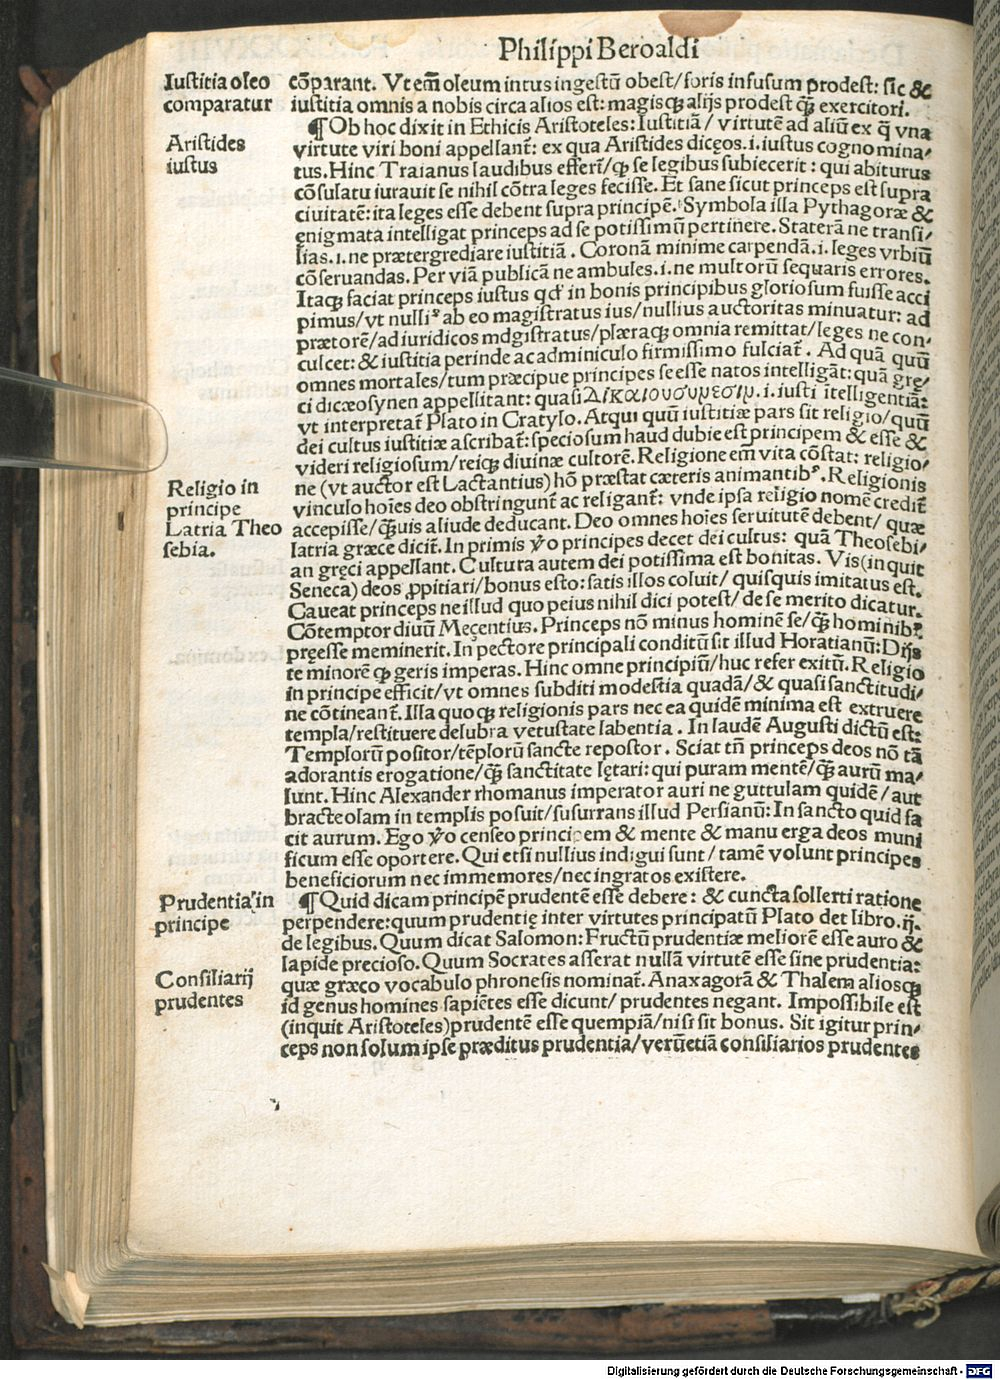 Philippi Beroaldi
Iustitia oleo
comparatur
Aristides
iustus
Religio in
principe
Latria Theo
sebia.
Prudentia in
principe
Consiliarij
prudentes
cōparant. Vt em̄ oleum intus ingestū obest/foris infusum prodest: sic &
iustitia omnis a nobis circa alios est: magisq̄ alijs prodest q̄ exercitori.
¶Ob hoc dixit in Ethicis Aristoteles: Iustitiā/ virtutē ad aliū ex q̄ vna
virtute viri boni appellant̄: ex qua Aristides dicęos.i.iustus cognomina⸗
tus. Hinc Traianus laudibus effert̄/ꝙ se legibus subiecerit: qui abiturus
cōsulatu iurauit se nihil cōtra leges fecisse. Et sane sicut princeps est supra
ciuitatē: ita leges esse debent supra principē. Symbola illa Pythagoræ &
enigmata intelligat princeps ad se potissimū pertinere. Staterā ne transi⸗
lias.i.ne prætergrediare iustitiā. Coronā minime carpendā.i.leges vrbiū
cōseruandas. Per viā publicā ne ambules.i.ne multorū sequaris errores.
Itaqꝫ faciat princeps iustus qd̄ in bonis principibus gloriosum fuisse acci
pimus/vt nulliꝰ ab eo magistratus ius/nullius auctoritas minuatur: ad
prætorē/ad iuridicos mdgistratus/plæraqꝫ omnia remittat/leges ne con⸗
culcet: & iustitia perinde ac adminiculo firmissimo fulciat̄. Ad quā quū
omnes mortales/tum præcipue principes se esse natos intelligāt: quā gre⸗
ci dicæosynen appellitant: quasi Δικαιουσυμεσιμ.i.iusti ītelligentiā:
vt interpretat̄ Plato in Cratylo. Atqui quū iustitiæ pars sit religio/quū
dei cultus iustitiæ ascribat̄: speciosum haud dubie est principem & esse &
videri religiosum/reiqꝫ diuinæ cultorē. Religione em̄ vita cōstat: religio⸗
ne (vt auctor est Lactantius) hō præstat cæteris animantibꝰ. Religionis
vinculo hoīes deo obstringunt̄ ac religant̄: vnde ipsa religio nomē credit̄
accepisse/q̄uis aliude deducant. Deo omnes hoīes seruitutē debent/ quæ
latria græce dicit̄. In primis v̊o principes decet dei cultus: quā Theosebi⸗
an gręci appellant. Cultura autem dei potissima est bonitas. Vis (inquit
Seneca) deos ꝓpitiari/bonus esto: satis illos coluit/ quisquis imitatus est.
Caueat princeps ne illud quo peius nihil dici potest/ de se merito dicatur.
Cōtemptor diuū Meçentius. Princeps nō minus hominē se/q̄ hominibꝰ
pręesse meminerit. In pectore principali conditū sit illud Horatianū: Dijs
te minorē ꝙ geris imperas. Hinc omne principiū/huc refer exitū. Religio
in principe efficit/vt omnes subditi modestia quadā/& quasi sanctitudi⸗
ne cōtineant̄. Illa quoqꝫ religionis pars nec ea quidē minima est extruere
templa/restituere delubra vetustate labentia. In laudē Augusti dictū est:
Templorū positor/tēplorū sancte repostor. Sciat tn̄ princeps deos nō tā
adorantis erogatione/q̄ sanctitate lętari: qui puram mentē/q̄ aurū ma⸗
lunt. Hinc Alexander rhomanus imperator auri ne guttulam quidē/aut
bracteolam in templis posuit/susurrans illud Persianū: In sancto quid fa
cit aurum. Ego v̊o censeo principem & mente & manu erga deos muni
ficum esse oportere. Qui etsi nullius indigui sunt/ tamē volunt principes
beneficiorum nec immemores/nec ingratos existere.
¶Quid dicam principē prudentē esse debere: & cuncta sollerti ratione
perpendere: quum prudentię inter virtutes principatū Plato det libro.ij.
de legibus. Quum dicat Salomon: Fructū prudentiæ meliorē esse auro &
lapide precioso. Quum Socrates asserat nullā virtutē esse sine prudentia:
quæ græco vocabulo phronesis nominat̄. Anaxagorā & Thalem aliosqꝫ
id genus homines sapiētes esse dicunt/ prudentes negant. Impossibile est
(inquit Aristoteles) prudentē esse quempiā/nisi sit bonus. Sit igitur prin⸗
ceps non solum ipse præditus prudentia/verūetiā consiliarios prudentes
Digitalisierung gefördert durch die Deutsche Forschungsgemeinschaft - DFG